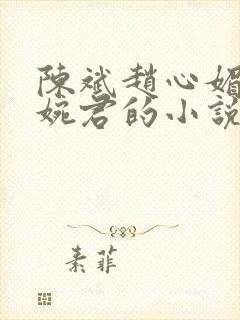 陳斌趙心媚
婉君的小說
素菲